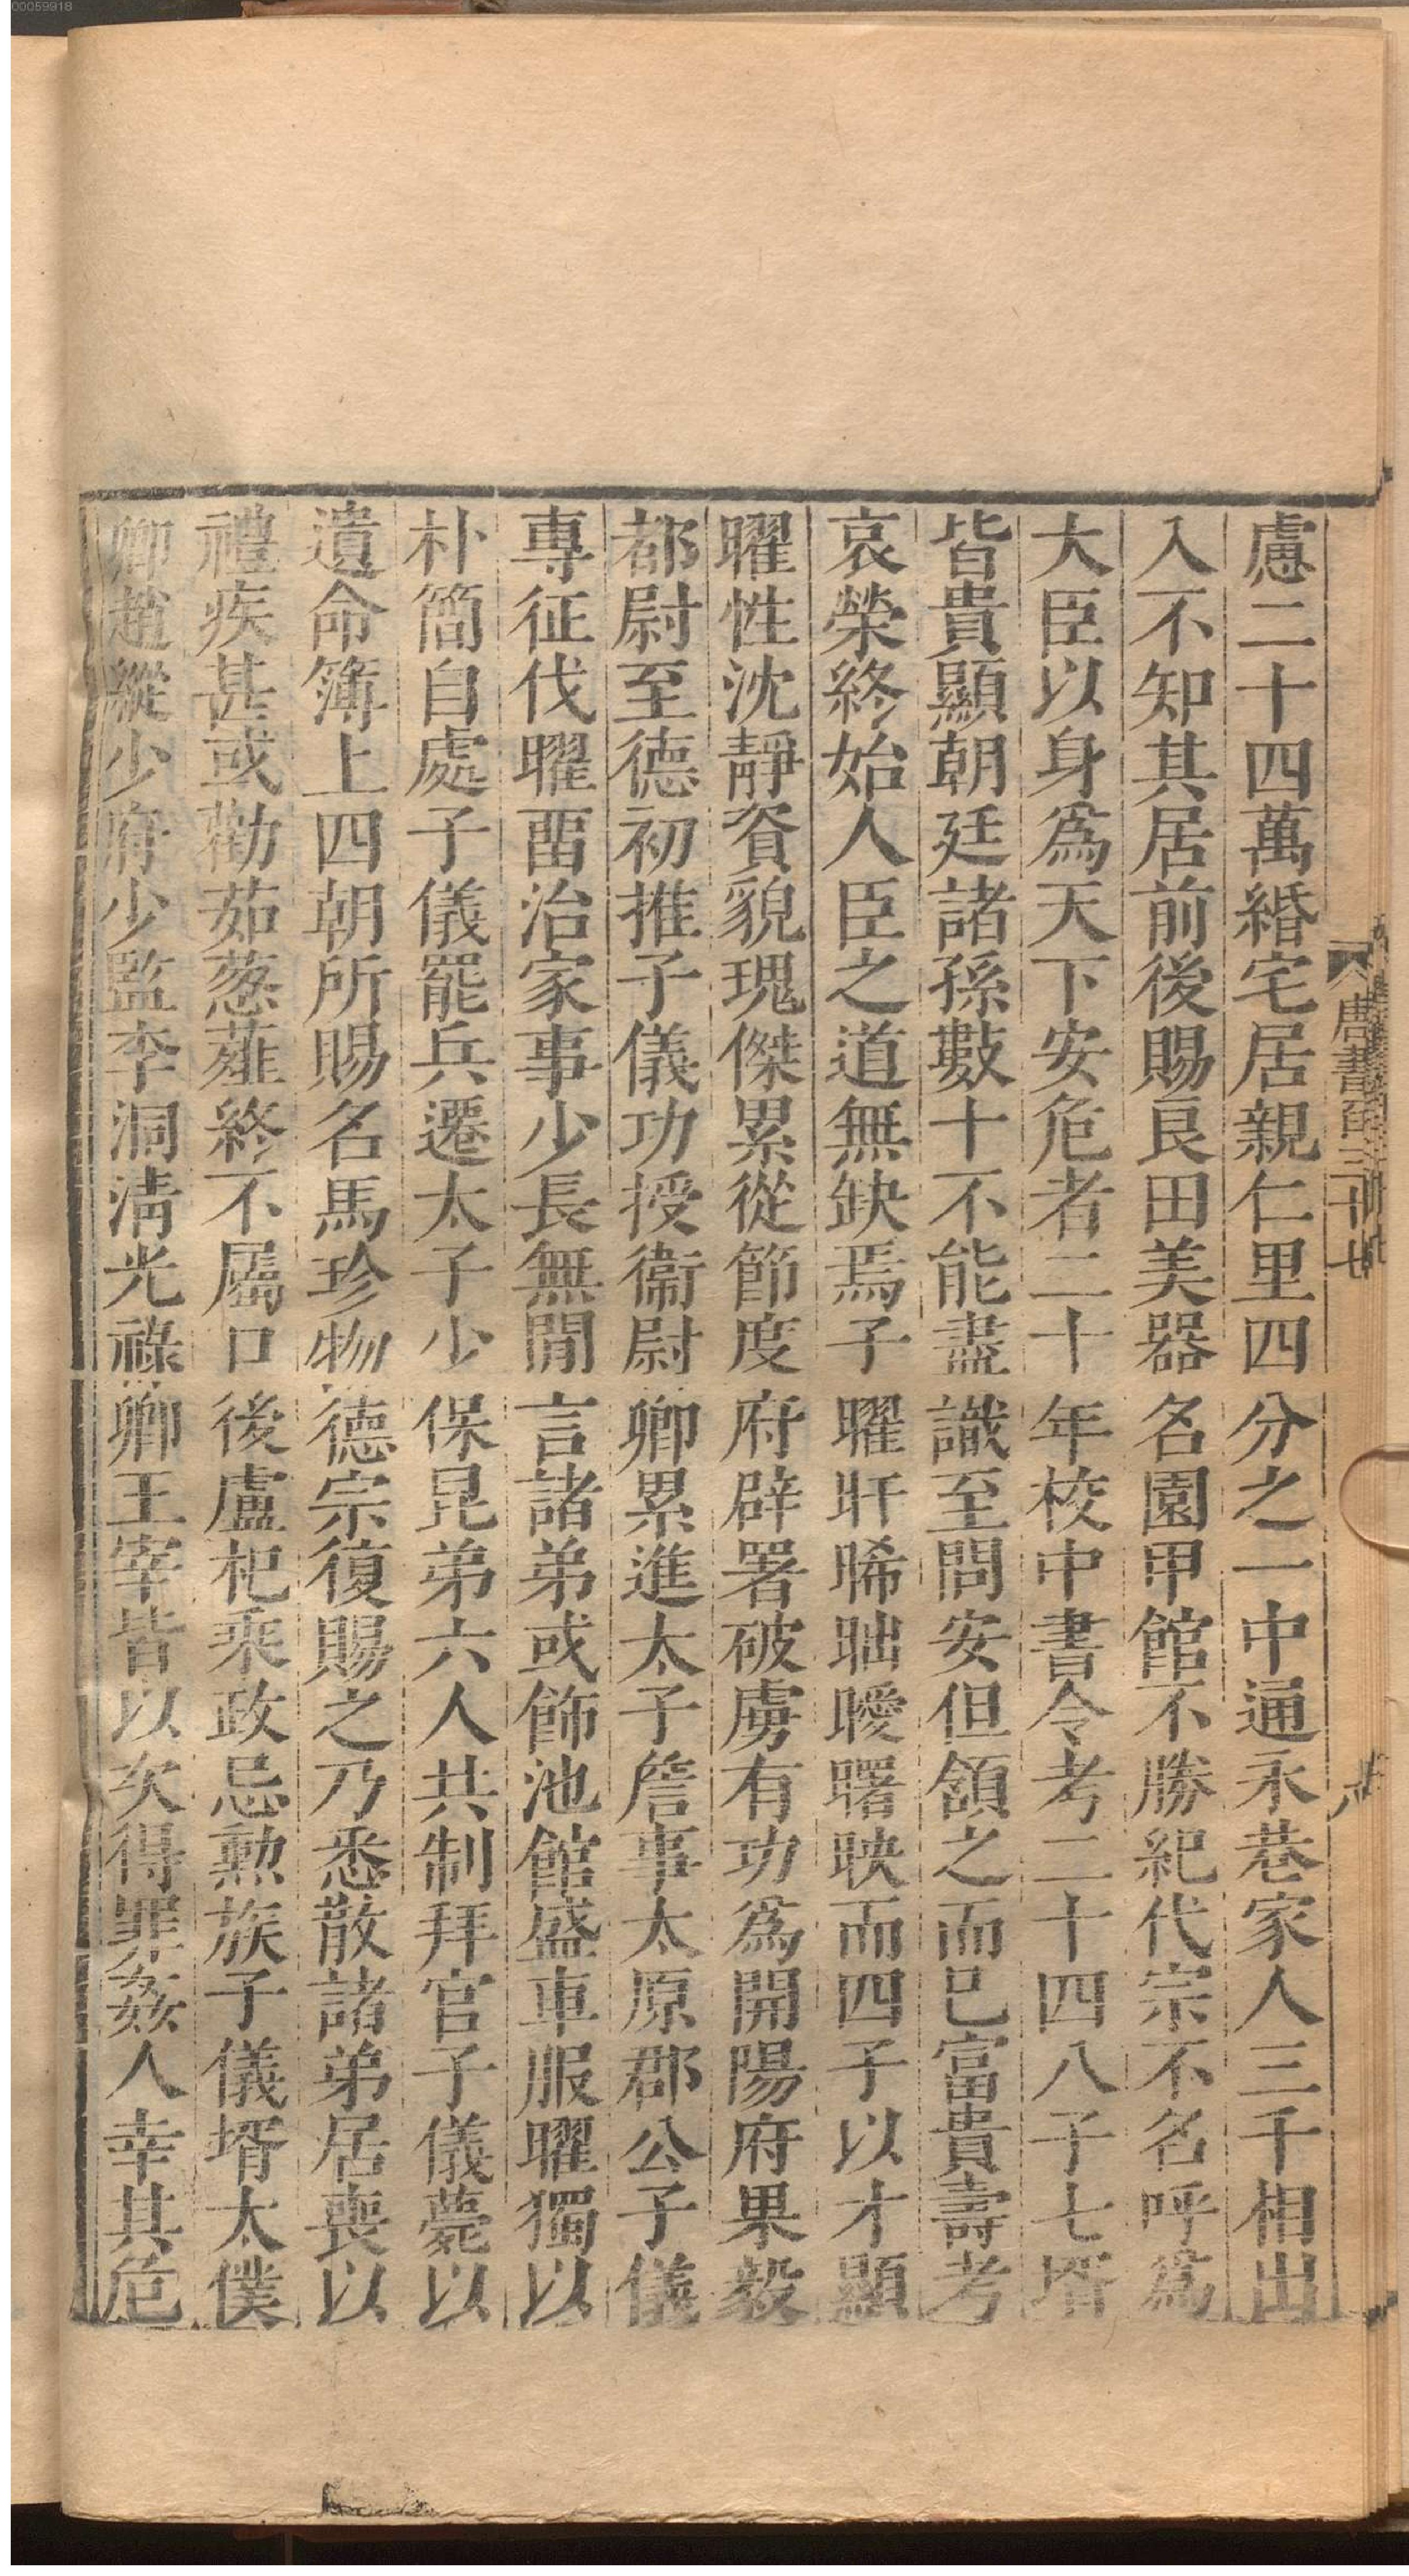 00059918
唐書百三十七
慮二十四萬緡宅居親仁里四分之一中通永巷家人三千相出
入不知其居前後賜良田美器名園甲館不勝紀代宗不名呼爲
大臣以身爲天下安危者二十年校中書令考二十四八子七壻
皆貴顯朝廷諸孫數十不能盡識至問安但頷之而已富貴壽考
哀榮終始人臣之道無缺焉子曜旰晞昢曖曙映而四子以才顯
曜性沈靜資貌瑰傑累從節度府辟署破虜有功爲開陽府果毅
都尉至德初推子儀功授衞尉卿累進太子詹事太原郡公子儀
專征伐曜畱治家事少長無閒言諸弟或飾池館盛車服曜獨以
朴簡自處子儀罷兵遷太子少保昆弟六人共制拜官子儀薨以
遺命簿上四朝所賜名馬珍物德宗復賜之乃悉散諸弟居喪以
禮疾甚或勸茹葱薤終不屬口後盧杞秉政忌勲族子儀壻太僕
卿趙縱少府少監李洞淸光祿卿王宰皆以次得罪姦人幸其危